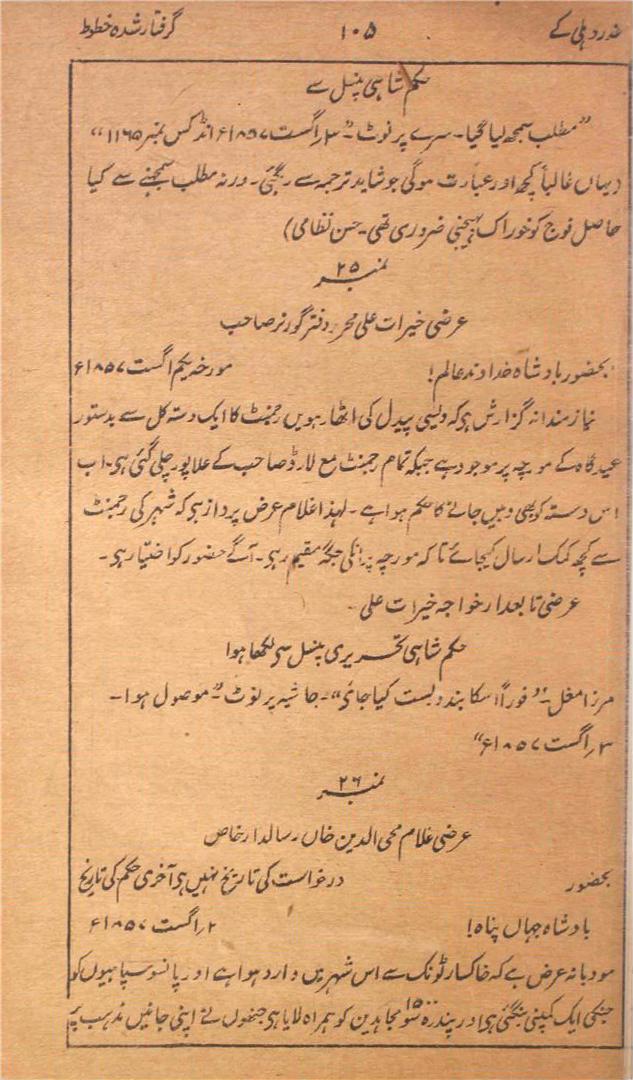 گرفتار شدہ خطوط ۱۰۵ غدر دہلی کے
حکم شاہی پنسل سے
”مطلب سمجھ لیا گیا۔ سرے پر نوٹ۔“ ۳؍ اگست ۱۸۵۷ء انڈکس نمبر ۱۱۶۵“
(یہاں غالباً کچھ اور عبارت ہوگی جو شاید ترجمہ سے رہگئی۔ ورنہ مطلب سمجھنے سے کیا
حاصل فوج کو خوراک پہنچنی ضروری تھی۔ حسن نظامی)
نمبر ۲۵
عرضی خیرات علی محرر دفتر گورنر صاحب
بحضور بادشاہ خداوند عالم! مورخہ یکم اگست ۱۸۵۷ء
نیازمندانہ گزارش ہی کہ دیسی پیدل کی اٹھارہویں رجمنٹ کا ایک دستہ کل سے بدستور
عیدگاہ کے مورچہ پر موجود ہے جبکہ تمام رجمنٹ مع لارڈ صاحب کے علاپور چلی گئی ہی۔ اب
اس دستہ کو بھی وہیں جانے کا حکم ہوا ہے۔ لہذا غلام عرض پرداز ہی کہ شہر کی رجمنٹ
سے کچھ کمک ارسال کیجائے تاکہ مورچہ پر انکی جگہ مقیم رہی۔ آگے حضور کو اختیار ہی۔
عرضی تابعدار خواجہ خیرات علی۔
حکم شاہی تحریری پنسل سی لکھا ہوا
مرزا مغل۔ ”فوراً اسکا بندوبست کیا جائے“۔ حاشیہ پر نوٹ ”۔ موصول ہوا۔
۳؍ اگست ۱۸۵۷ء“
نمبر ۲۶
عرضی غلام محی الدین خاں رسالدار خاص
بحضور درخواست کی تاریخ نہیں ہی آخری حکم کی تاریخ
بادشاہ جہاں پناہ! ۲؍ اگست ۱۸۵۷ء
مودبانہ عرض ہے کہ خاکسار ٹونک سے اس شہر میں وارد ہوا ہے اور پانسو سپاہیوں کو
جنکی ایک کمپنی بنگئی ہی اور پندرہ سو ۱۵۰۰ مجاہدین کو ہمراہ لایا ہی جنھوں نے اپنی جانیں مذہب پر